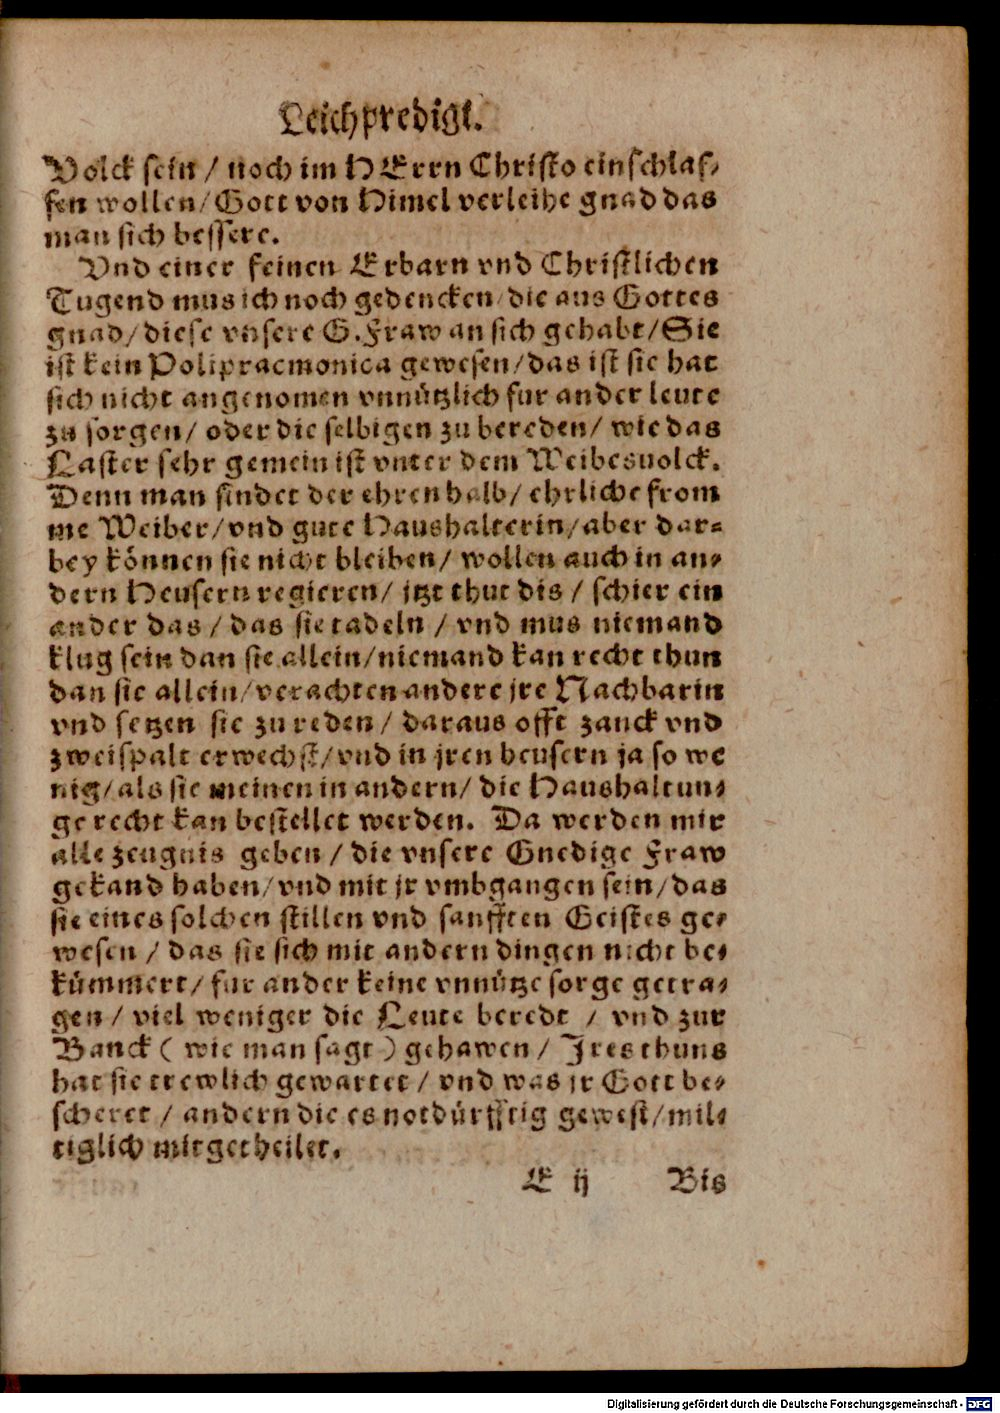 Leichpredigt.
Volck sein / noch im HErrn Christo einschlaf-
fen wollen / Gott von Himel verleihe gnad das
man sich bessere.
Vnd einer feinen Erbarn vnd Christlichen
Tugend mus ich noch gedencken / die aus Gottes
gnad / diese vnsere G. Fraw an sich gehabt / Sie
ist kein Polipracmonica gewesen / das ist sie hat
sich nicht angenomen vnnützlich fur ander leute
zu sorgen / oder die selbigen zu bereden / wie das
Laster sehr gemein ist vnter dem Weibesuolck.
Denn man findet der ehrenhalb / ehrliche from
me Weiber / vnd gute Haushalterin / aber dar-
bey können sie nicht bleiben / wollen auch in an-
dern Heusern regieren / jtzt thut dis / schier ein
ander das / das sie tadeln / vnd mus niemand
klug sein dan sie allein / niemand kan recht thun
dan sie allein / verachten andere jre Nachbarin
vnd setzen sie zu reden / daraus offt zanck vnd
zweispalt erwechst / vnd in jren heusern ja so we
nig / als sie meinen in andern / die Haushaltun-
ge recht kan bestellet werden. Da werden mir
alle zeugnis geben / die vnsere Gnedige Fraw
gekand haben / vnd mit jr vmbgangen sein / das
sie eines solchen stillen vnd sanfften Geistes ge-
wesen / das sie sich mit andern dingen nicht be-
kümmert / fur ander keine vnnütze sorge getra-
gen / viel weniger die Leute beredt / vnd zur
Banck ( wie man sagt ) gehawen / Jres thuns
hat sie trewlich gewartet / vnd was jr Gott be-
scheret / andern die es notdürfftig gewest / mil-
tiglich mitgetheilet.
E ij Bis
Digitalisierung gefördert durch die Deutsche Forschungsgemeinschaft - DFG